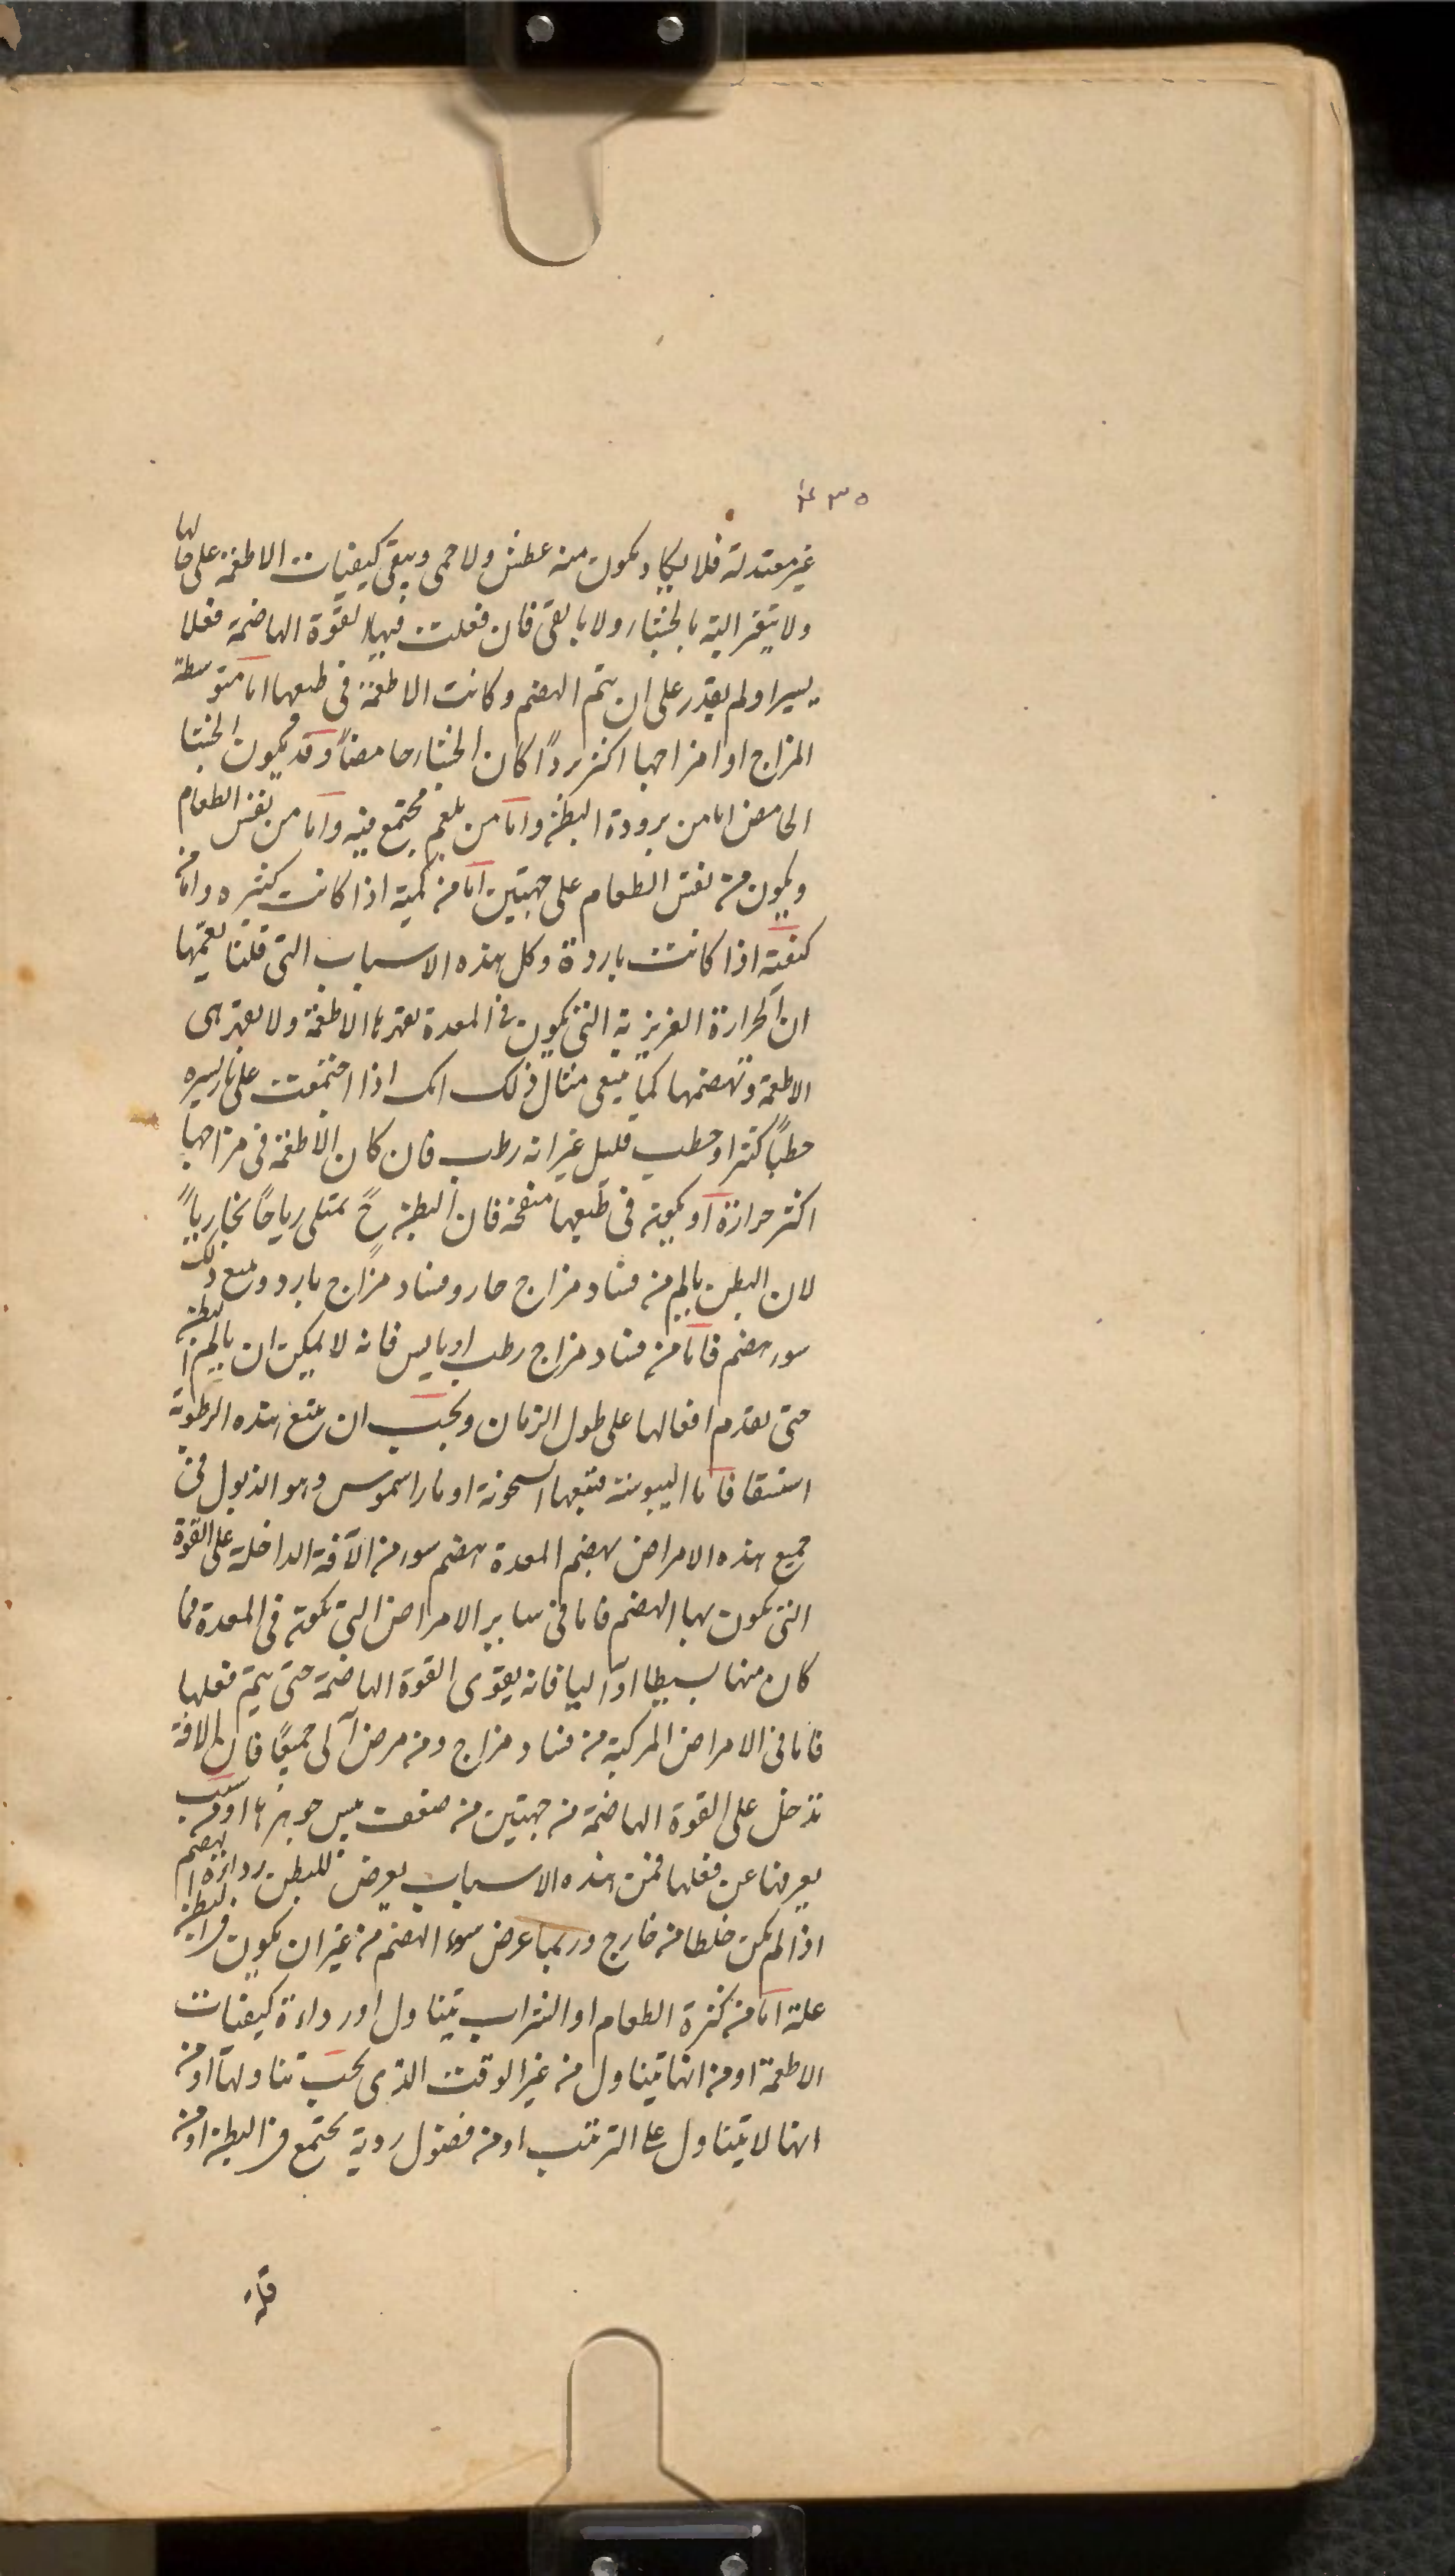 غير معتدلة فلا يكاد يكون منه عطش ولا حمى ويبقى كيفيات الاطعمة على حالها
ولا يتغير البتة بالجشاء ولا بالقى فان فعلت فيها القوة الهاضمة فعلا
يسيرا ولم يقدر على ان يتم الهضم وكانت الاطعمة فى طبعها اما متوسطة
المزاج او امزاجها اكثر بردًا كان الجشاء حامضًا وقد يكون الجشا
الحامض اما من برودة البطن واما من بلغم مجتمع فيه واما من نفس الطعام
ويكون من نفس الطعام على جهتين اما من كمية اذا كانت كثيره واما من
كيفية اذا كانت باردة وكل هذه الاسباب التى قلنا يعمّها
ان الحرارة الغريزية التى يكون فى المعدة تقهرها الاطعمة ولا يقهر هى
الاطعمة وتهضمها كما ينبغى مثال ذلك انك اذا اجتمعت على نار يسيره
حطبًا كثيرا وحطب قليل غير انه رطب فان كان الاطعمة فى مزاجها
اكثر حرارة او يكون فى طبعها منفخة فان البطن ح يمتلى رياحًا بخارياً
لان البطن يالم من فساد مزاج حار وفساد مزاج بارد ومع ذلك
سوء هضم فاما من فساد مزاج رطب او يابس فانه لا يمكن ان يالم البطن
حتى يعدم افعالها على طول الزمان ويجب ان يتبع هذه الرطوبة
استسقا فاما اليبوسة فتتبعها السحونة او ماراسموس وهو الذبول فى
جميع هذه الامراض يهضم المعدة هضم سوء من الآفة الداخلة على القوة
التى يكون بها الهضم فاما فى ساير الامراض التى يكون فى المعدة مما
كان منها بسيطا او آليا فانه يقوى القوة الهاضمة حتى يتم فعلها
فاما فى الامراض المركبة من فساد مزاج ومن مرض آلى جميعًا فان الافة
تدخل على القوة الهاضمة من جهتين من ضعف جوهرها او من سبب
يعرضا عن فعلها فمن هذه الاسباب يعرض للبطن رداءة الهضم
اذا لم يكن خلطا من خارج وربما عرض سوء الهضم من غير ان يكون فى البطن
علة اما من كثرة الطعام او الشراب يتناول او رداءة كيفيات
الاطعمة او من انها يتناول من غير الوقت الذى يجب تناولها او من
انها لا يتناول على الترتيب او من فضول ردية يجتمع فى البطن او من
قلة